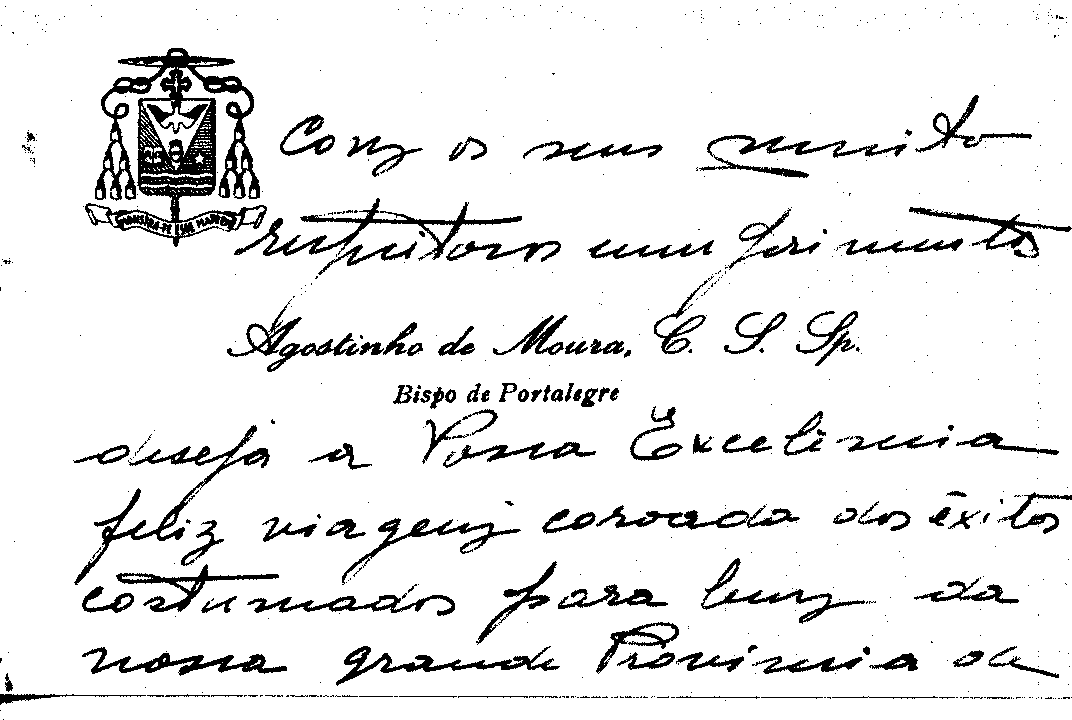 Com os seus muito
respeitosos cumprimentos
Agostinho de Moura, C. S. Sp.
Bispo de Portalegre
deseja a Vossa Excelência
feliz viagem coroada dos êxitos
costumados para bem da
nossa grande Província de